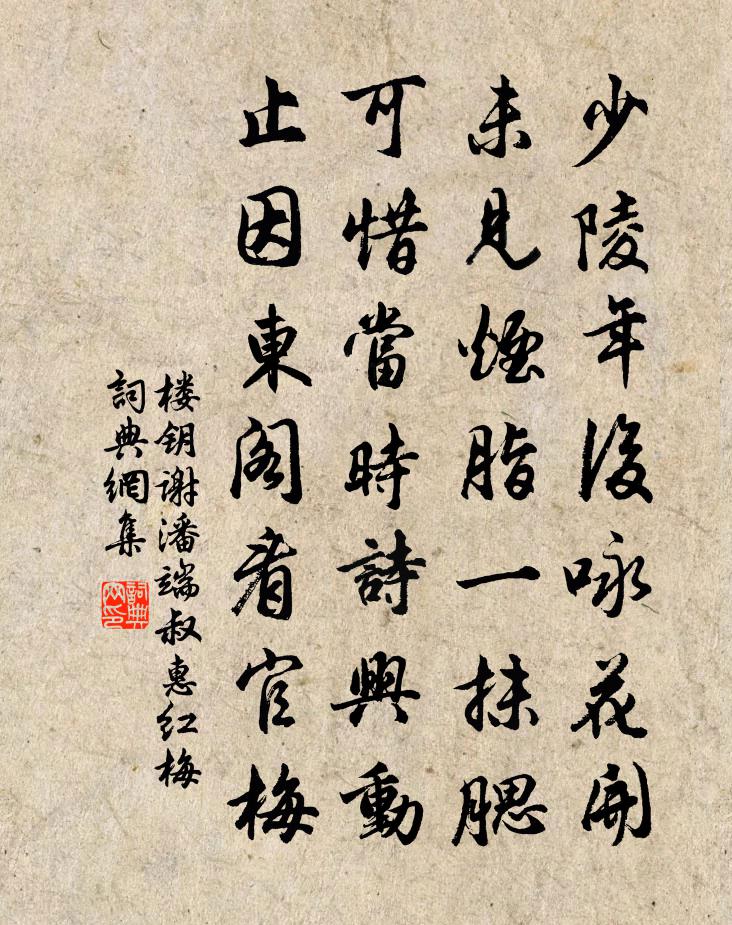 少陵年後咏花開
未見煙脂一抹腮
可惜當時詩興動
止因東閣看官梅
楼钥谢潘端叔惠红梅
詞典網集
詞典网印